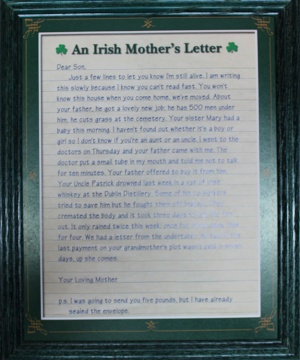 An Irish Mother's Letter
Dear Son,
Just a few lines to let you know I'm still alive. I am writing
this slowly because I know you can't read fast. You won't
know this house when you come home, we've moved. About
your father, he got a lovely new job; he has 500 men under
him, he cuts grass at the cemetery. Your sister Mary had a
baby this morning. I haven't found out whether it's a boy or
girl so I don't know if you're an aunt or an uncle. I went to the
doctors on Thursday and your father came with me. The
doctor put a small tube in my mouth and told me not to talk
for ten minutes. Your father offered to buy it from him.
Your Uncle Patrick drowned last week in a vat of Irish
whiskey at the Dublin Distillery. Some of his
tried to save him but he fought them off
cremated the body and it took three days to
out. It only rained twice this week,
for four. We had a letter from the undertaker.
last payment on your grandmother's plot wasn't paid in seven
days, up she comes.
Your Loving Mother
p.s. I was going to send you five pounds, but I have already
sealed the envelope.